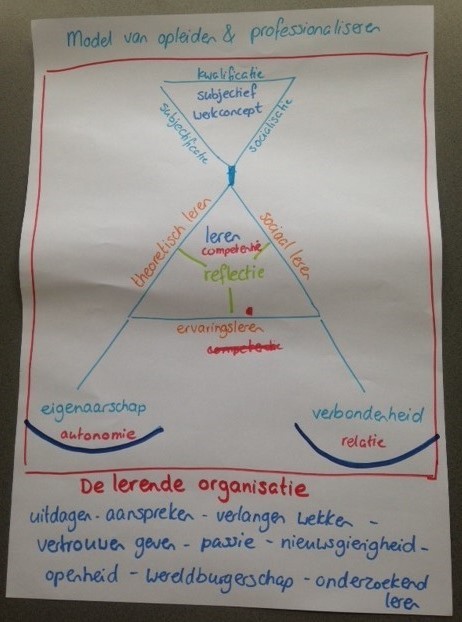 Model van opleiden & professionaliseren
kwalificatie
subjectief
werkconcept
subjectificatie
socialisatie
theoretisch leren
sociaal leren
leren
competentie
reflectie
ervaringsleren
competentie
eigenaarschap
autonomie
verbondenheid
relatie
De lerende organisatie
uitdagen - aanspreken - verlangen wekken -
vertrouwen geven - passie - nieuwsgierigheid -
openheid - wereldburgerschap - onderzoekend
leren